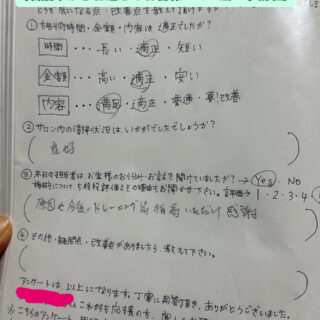 どを感じる点・改善点を教えて頂けますか
①お施術時間・金額・内容は適正でしたか？
時間・・・長い・適正・短い
金額・・・高い・適正・安い
内容・・・満足・適正・普通・要改善
②サロン内の清掃状況は、いかがでしたでしょうか？
良好
③本日の担当者は、お客様のお悩み・お話を聞けていましたか？→Yes・NO
施術について5段階評価とその理由もお聞かせ下さい。評価→1・2・3・4
原因や今後のトレーニング等指導いただけ感謝
④その他・疑問点・改善点がありましたら、教えて下さい。
アンケートは、以上になります。丁寧に御回答頂き、ありがとうございました。
これからも応援の方、宜しく
※こちらのアンケート